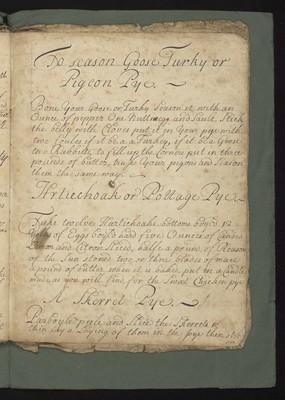 To season Goose Turky or
Pigeon Pye.
Bone Your Goose or Turky Season it with an
Ounce of pepper One Nutmeg and Sault Stick
the belly with Cloves put it in Your pye with
two if it be a a Turkey, if it be a Goose
two Rabbits, to fill up the Cornor put in three
pounds of butter, truse Your pigeon and Season
them the same way.
Hrtiechoak or Pottage Pye
Take twelve Hartichoake bottoms boyl'd 12
of Eggs boyl'd hard three Ounces of Candied
and Citron Sliced, half a pound of Reasons
of the Sun stoned two or three blades of mace
a pound of butter when it is baked, put in a Caudle
made as you will find for the Small Chicken pye
A Skerret Pye.
Parboyle peele and Slice the Skerrets
thin lay a Laying of them in the pye then